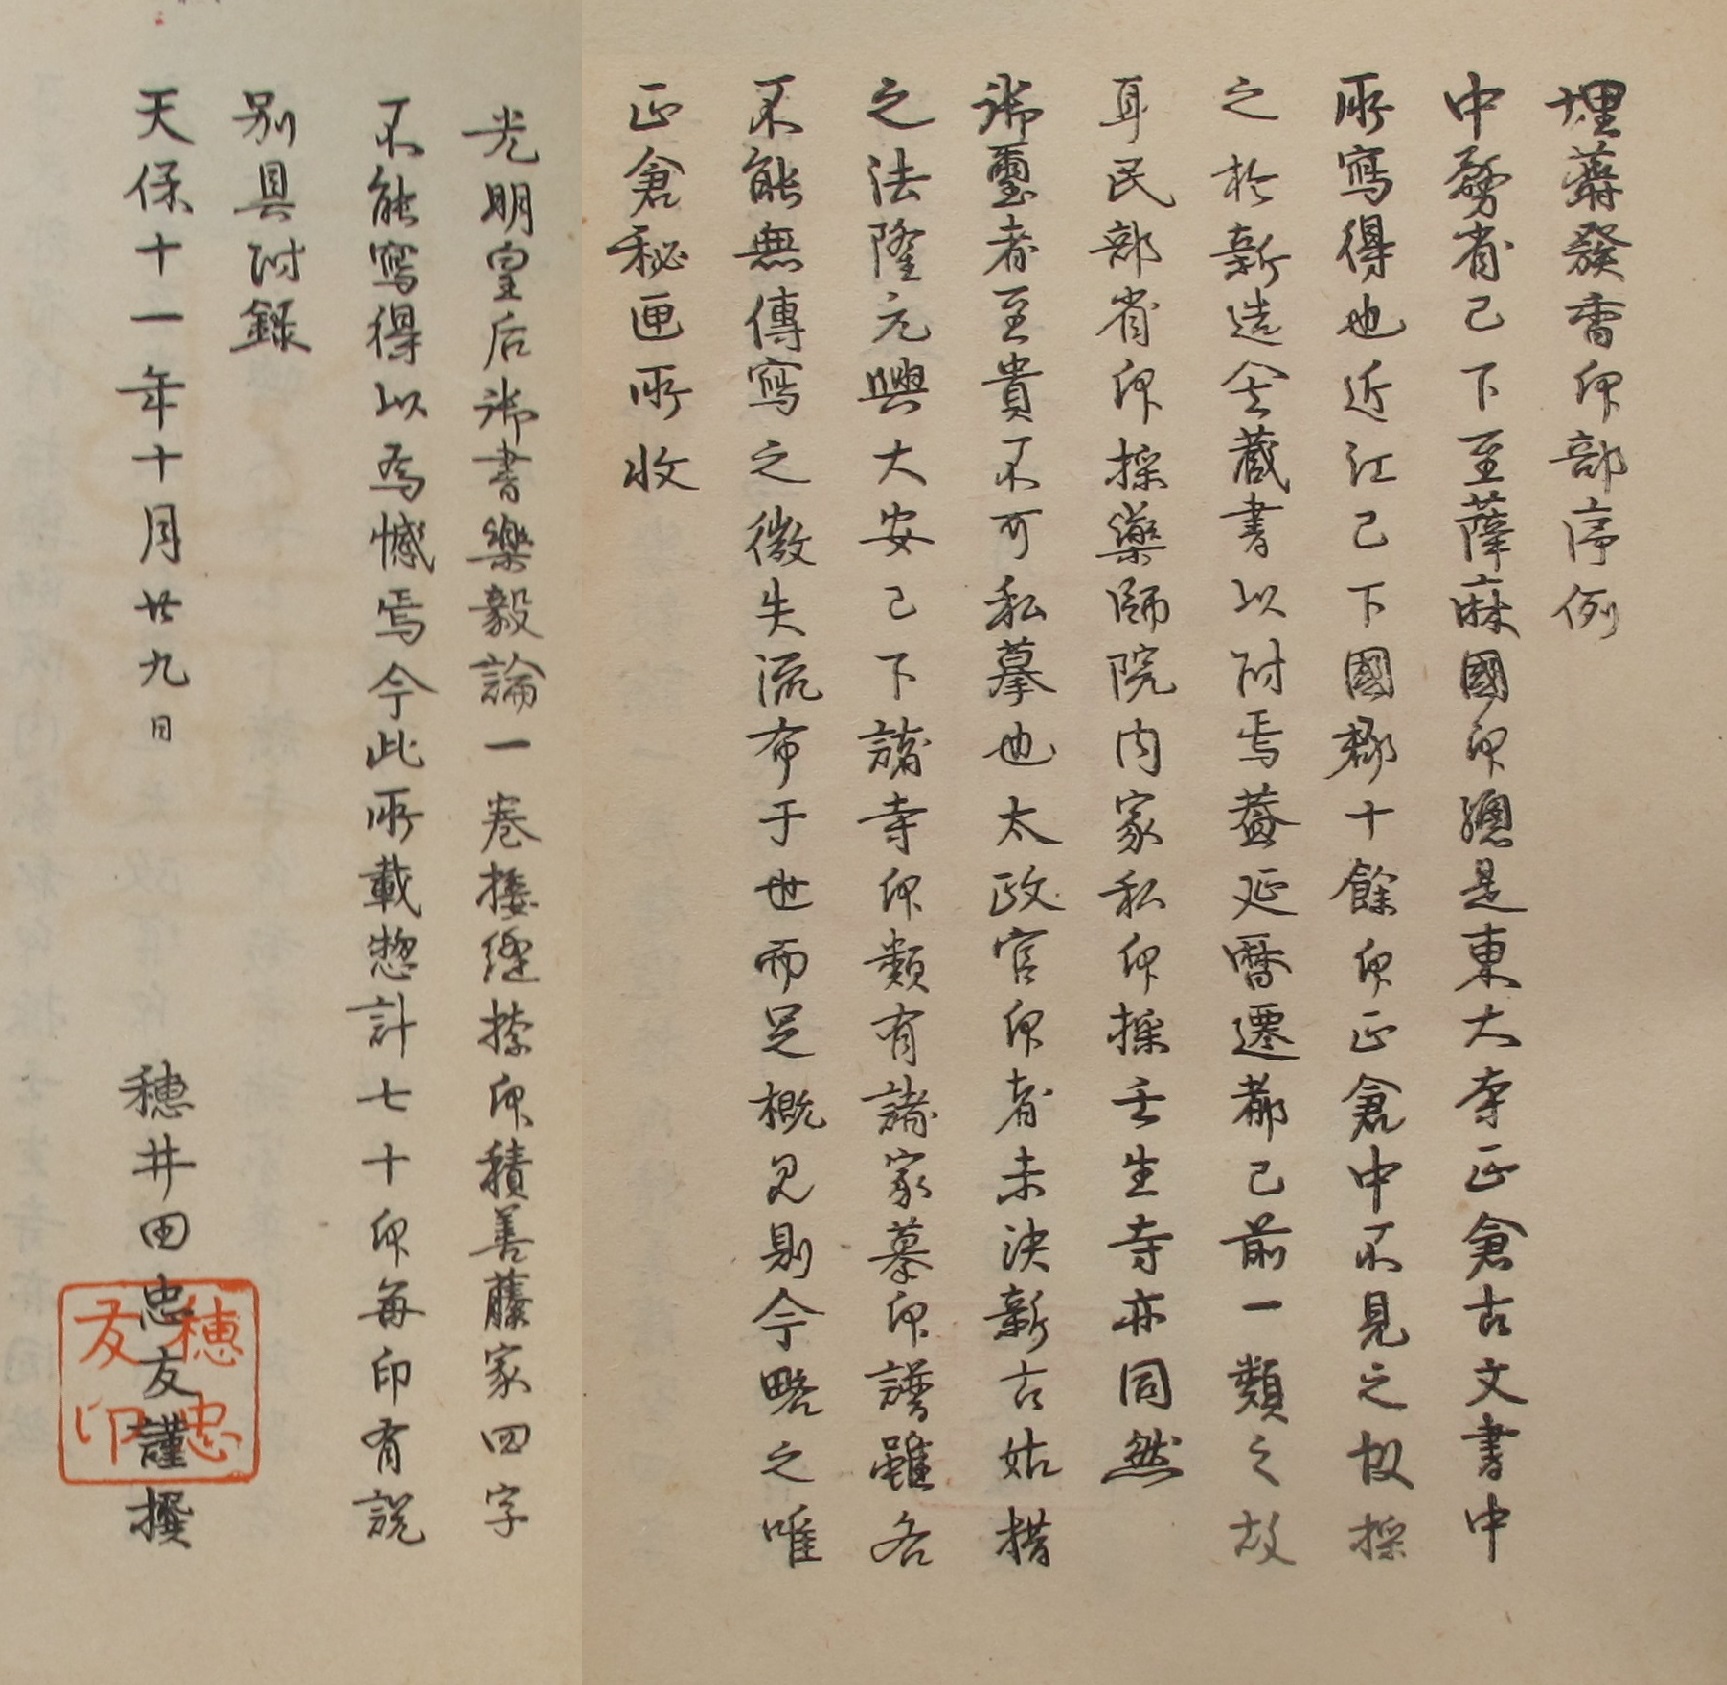 埋麝發香印部序例
中務省已下至薩麻國印總是東大寺正倉古文書中
所寫得也近江已下國郡十餘印正倉中不見之故採
之於新造全藏書以附焉蓋延曆遷都已前一類之故
耳民部省印採藥師院內家私印採壬生寺亦同然
御璽者至貴不可私摹也太政官印者未決新古姑措
之法隆元興大安已下諸寺印類有諸家摹印譜雖各
不能無傳寫之微失流布于世而足概見則今略之唯
正倉秘匣所收
光明皇后御書樂毅論一卷接縫搽印積善藤家四字
不能寫得以為憾焉今此所載惣計七十印每印有說
別具附錄
天保十一年十月廿九日
穗井田忠友謹撰
穗忠友印